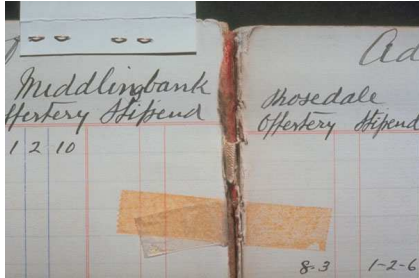 Ad
Middlingbank
Offertery Stipend
1 2 10
Rosedale
Offertery Stipend
8-3 1-2-6